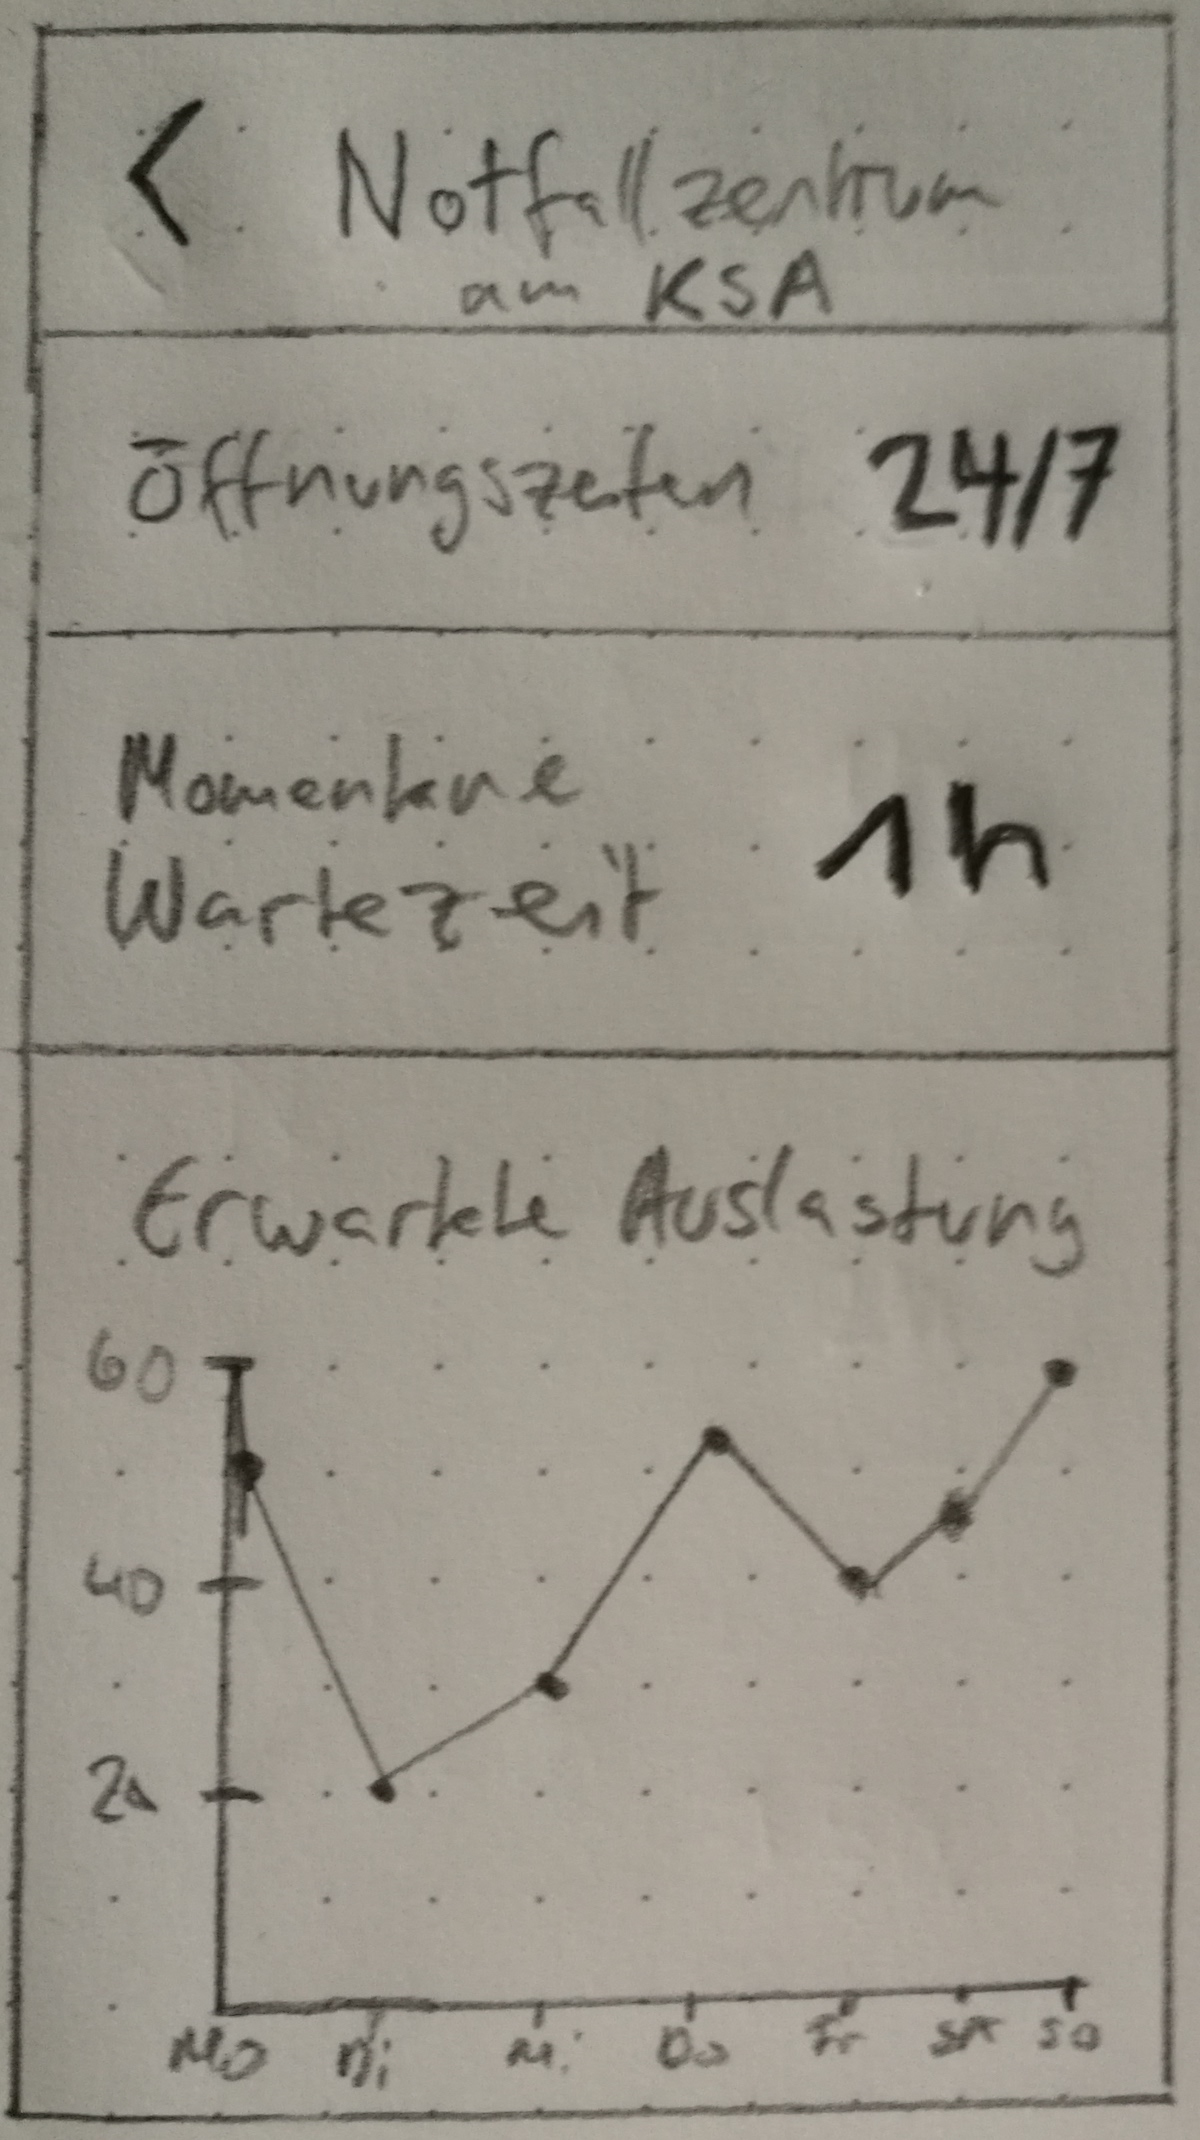 < Notfallzentrum
am KSA
Öffnungszeiten 24/7
Momentane
Wartezeit 1h
Erwartete Auslastung
60
40
20
Mo Di Mi Do Fr SA So